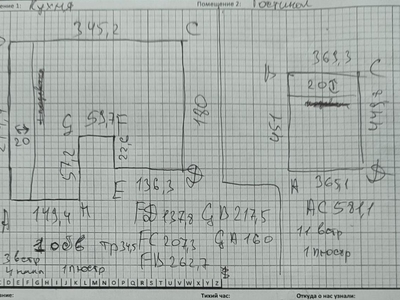 Помещение 2: Гостиная
Кухня
345,2
C
369,3
B
C
20
180
451
449,8
G
59,7
F
20
22,2
57,2
D
E
136,3
A
365,1
D
A
149,4
H
FD 137,8 GB 217,5
AC 581,1
1 обв тр 345
FC 207,3 GA 160
11 встр
3 встр
FB 262,7
1 пюстр
4 напл 1 пюстр
C D E F G H I J K L M N O P Q R S T U V W X Y Z
Тихий час:
Откуда о нас узнали: